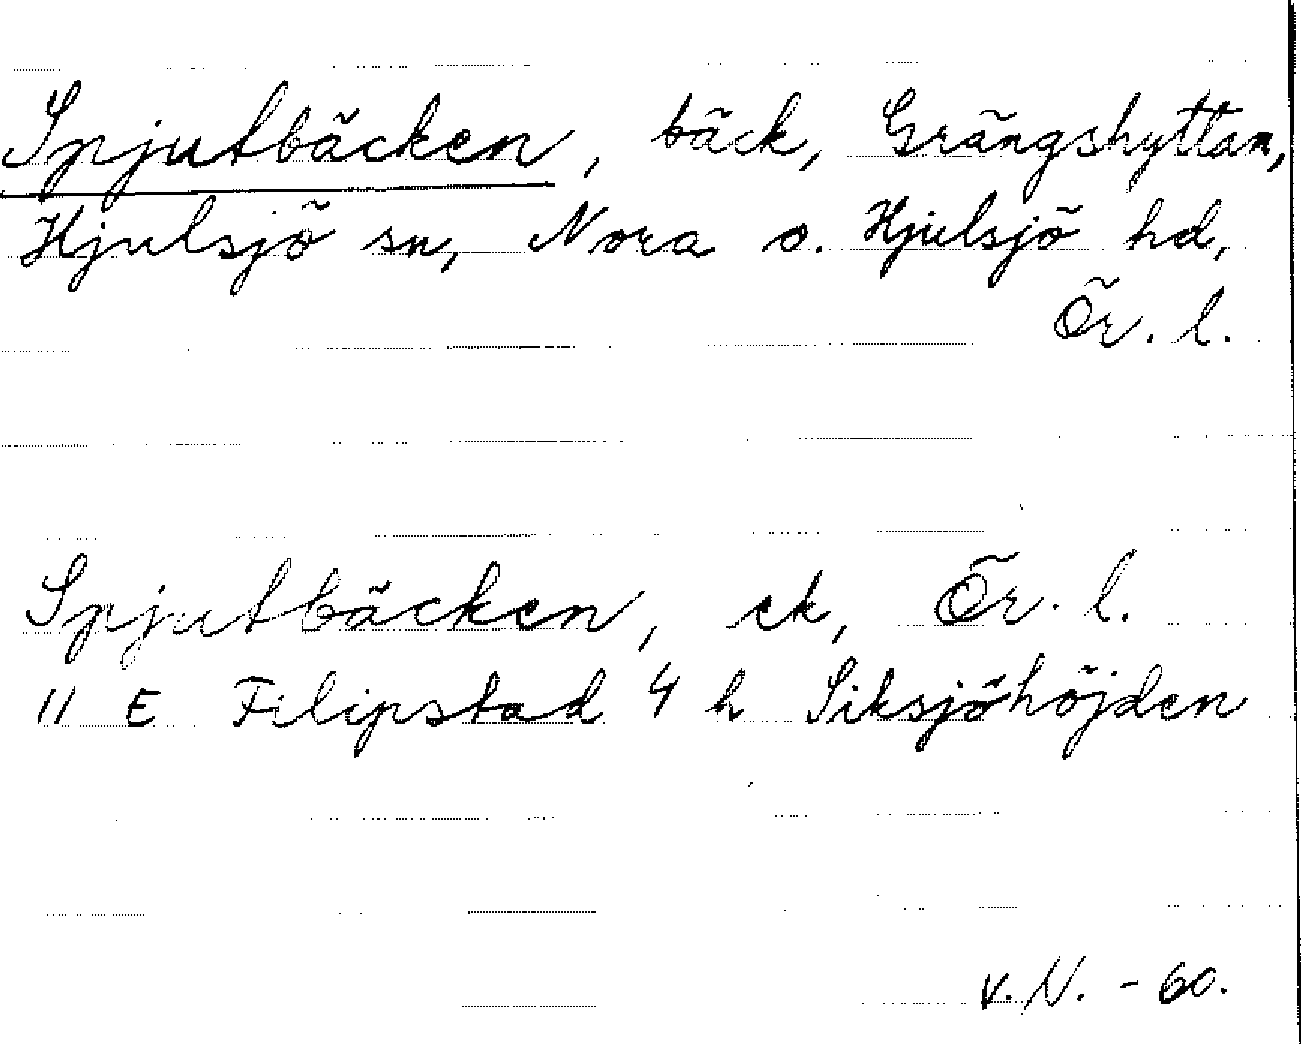 Spjutbäcken, bäck, Grängshyttan,
Hjulsjö sn, Nora o. Hjulsjö hd,
Ör. l.
Spjutbäcken, ek, Ör. l.
11 E Filipstad 4 h Siksjöhöjden
v. N. - 60.